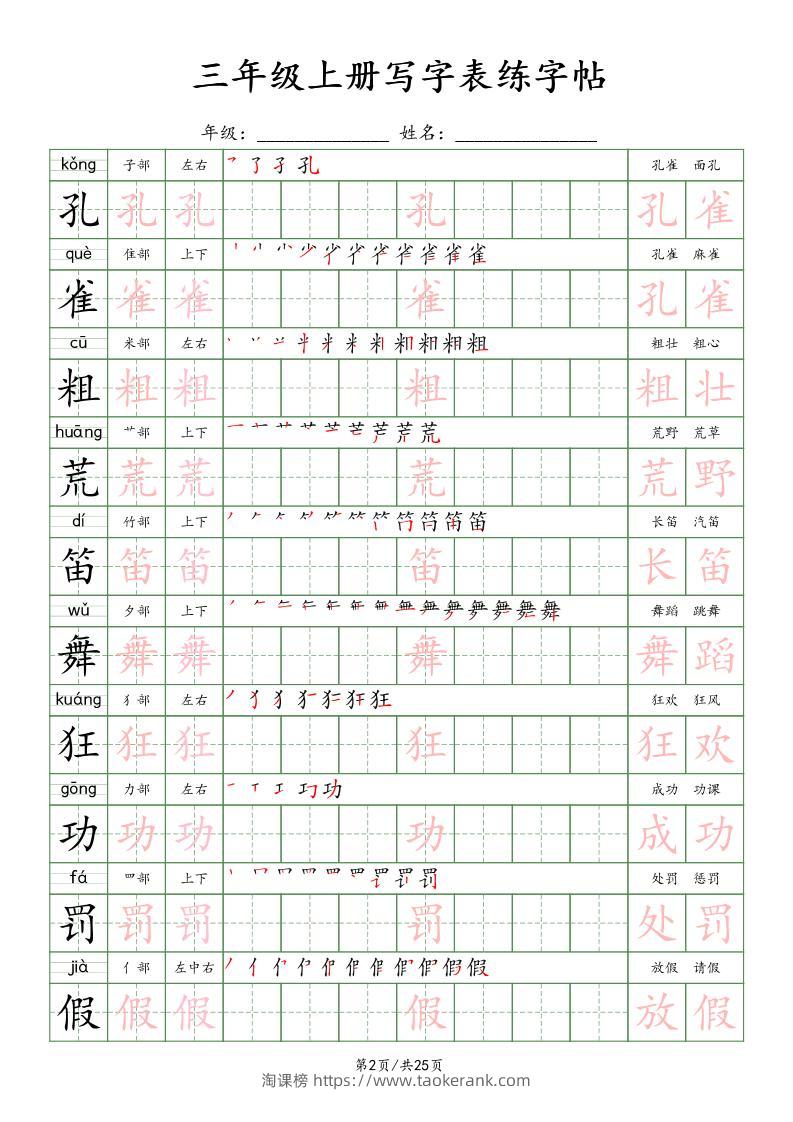 三年级上册写字表练字帖
年级：______________ 姓名：_______________
kǒng 子部 左右 孔雀 面孔
孔 孔 孔 孔 孔 雀
què 隹部 上下 孔雀 麻雀
雀 雀 雀 雀 孔 雀
cū 米部 左右 粗壮 粗心
粗 粗 粗 粗 粗 壮
huāng 艹部 上下 荒野 荒草
荒 荒 荒 荒 荒 野
dí 竹部 上下 长笛 汽笛
笛 笛 笛 笛 长 笛
wǔ 夕部 上下 舞蹈 跳舞
舞 舞 舞 舞 舞 蹈
kuáng 犭部 左右 狂欢 狂风
狂 狂 狂 狂 狂 欢
gōng 力部 左右 成功 功课
功 功 功 功 成 功
fá 罒部 上下 处罚 惩罚
罚 罚 罚 罚 处 罚
jià 亻部 左中右 放假 请假
假 假 假 假 放 假
第2页/共25页
淘课榜 https://www.taokerank.com